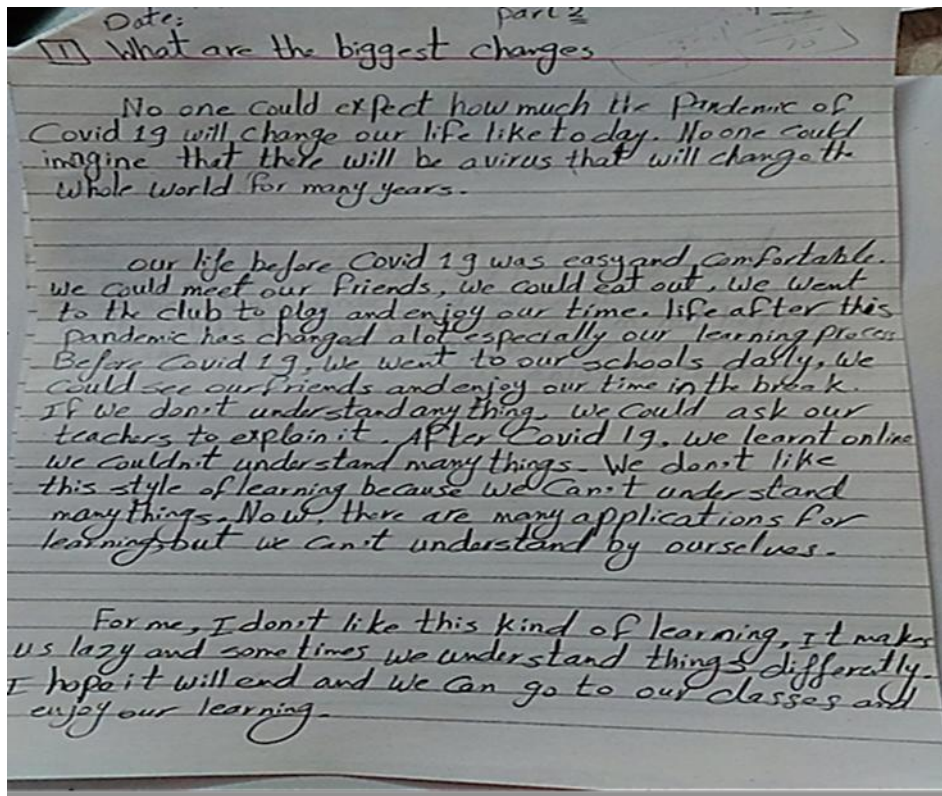 Date:
part 2
1 What are the biggest changes
No one could expect how much the Pandemic of
Covid 19 will change our life like today. No one could
imagine that there will be a virus that will change the
whole world for many years.
our life before Covid 19 was easy and comfortable.
we could meet our friends, we could eat out, we went
to the club to play and enjoy our time. life after this
pandemic has changed alot especially our learning process
Before Covid 19, we went to our schools daily, we
could see our friends and enjoy our time in the break.
If we don't understand any thing, we could ask our
teachers to explain it. After Covid 19, we learnt online
we couldn't understand many things. We don't like
this style of learning because we can't understand
many things. Now, there are many applications for
learning but we can't understand by ourselves.
For me, I don't like this kind of learning, It makes
us lazy and some times we understand things differetly.
I hope it will end and we can go to our classes and
enjoy our learning.